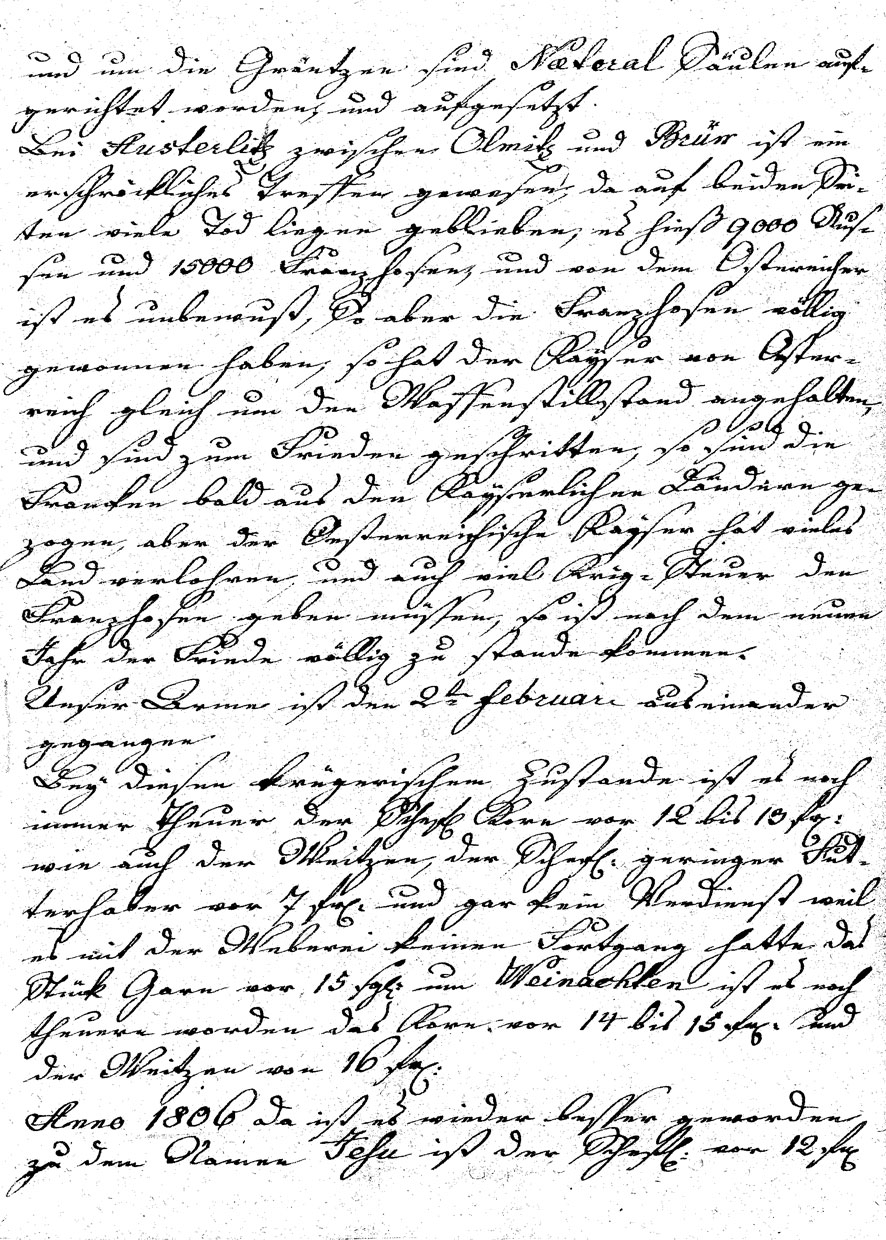 und um die Gräntzen sind Netoral Säulen auf-
gerichtet worden, und aufgesetzt.
Bei Austerlitz zwischen Olmitz und Brün ist ein
erschröckliches Treffen gewesen, da auf beiden Sei-
ten viele Tod liegen geblieben, es hieß 9000 Rus-
sen und 15000 Franzhosen, und von dem Östereicher
ist es unbewust, So aber die Franzhosen völlig
gewonnen haben, so hat der Kayser von Öster-
reich gleich um den Waffenstillstand angehalten,
und sind zum Frieden geschritten, so sind die
Franken bald aus den Kayserlichen Ländern ge-
zogen, aber der Oesterreichische Kayser hat vieles
Land verlohren, und auch viel Krig-Steuer den
Franzhosen geben müssen, so ist nach dem neuen
Jahr der Friede völlig zu stande kommen.
Unser Arme ist den 2te Februari auseinander
gegangen
Bey diesen krügerischem Zustande ist es noch
immer theuer der Schefl Korn vor 12 bis 13 frx:
wie auch der Weitzen, der Schefl: geringer Fut-
terhaber vor 7 frx. und gar kein Verdienst weil
es mit der Weberei keinen Fortgang hatte das
Stück Garn vor 15 sgl: um Weinachten ist es noch
theuern worden das Korn vor 14 bis 15 frx. und
der Weitzen von 16 frx:
Anno 1806 da ist es wieder besser geworden
zu dem Namen Jesu ist der Schefl: vor 12 frx